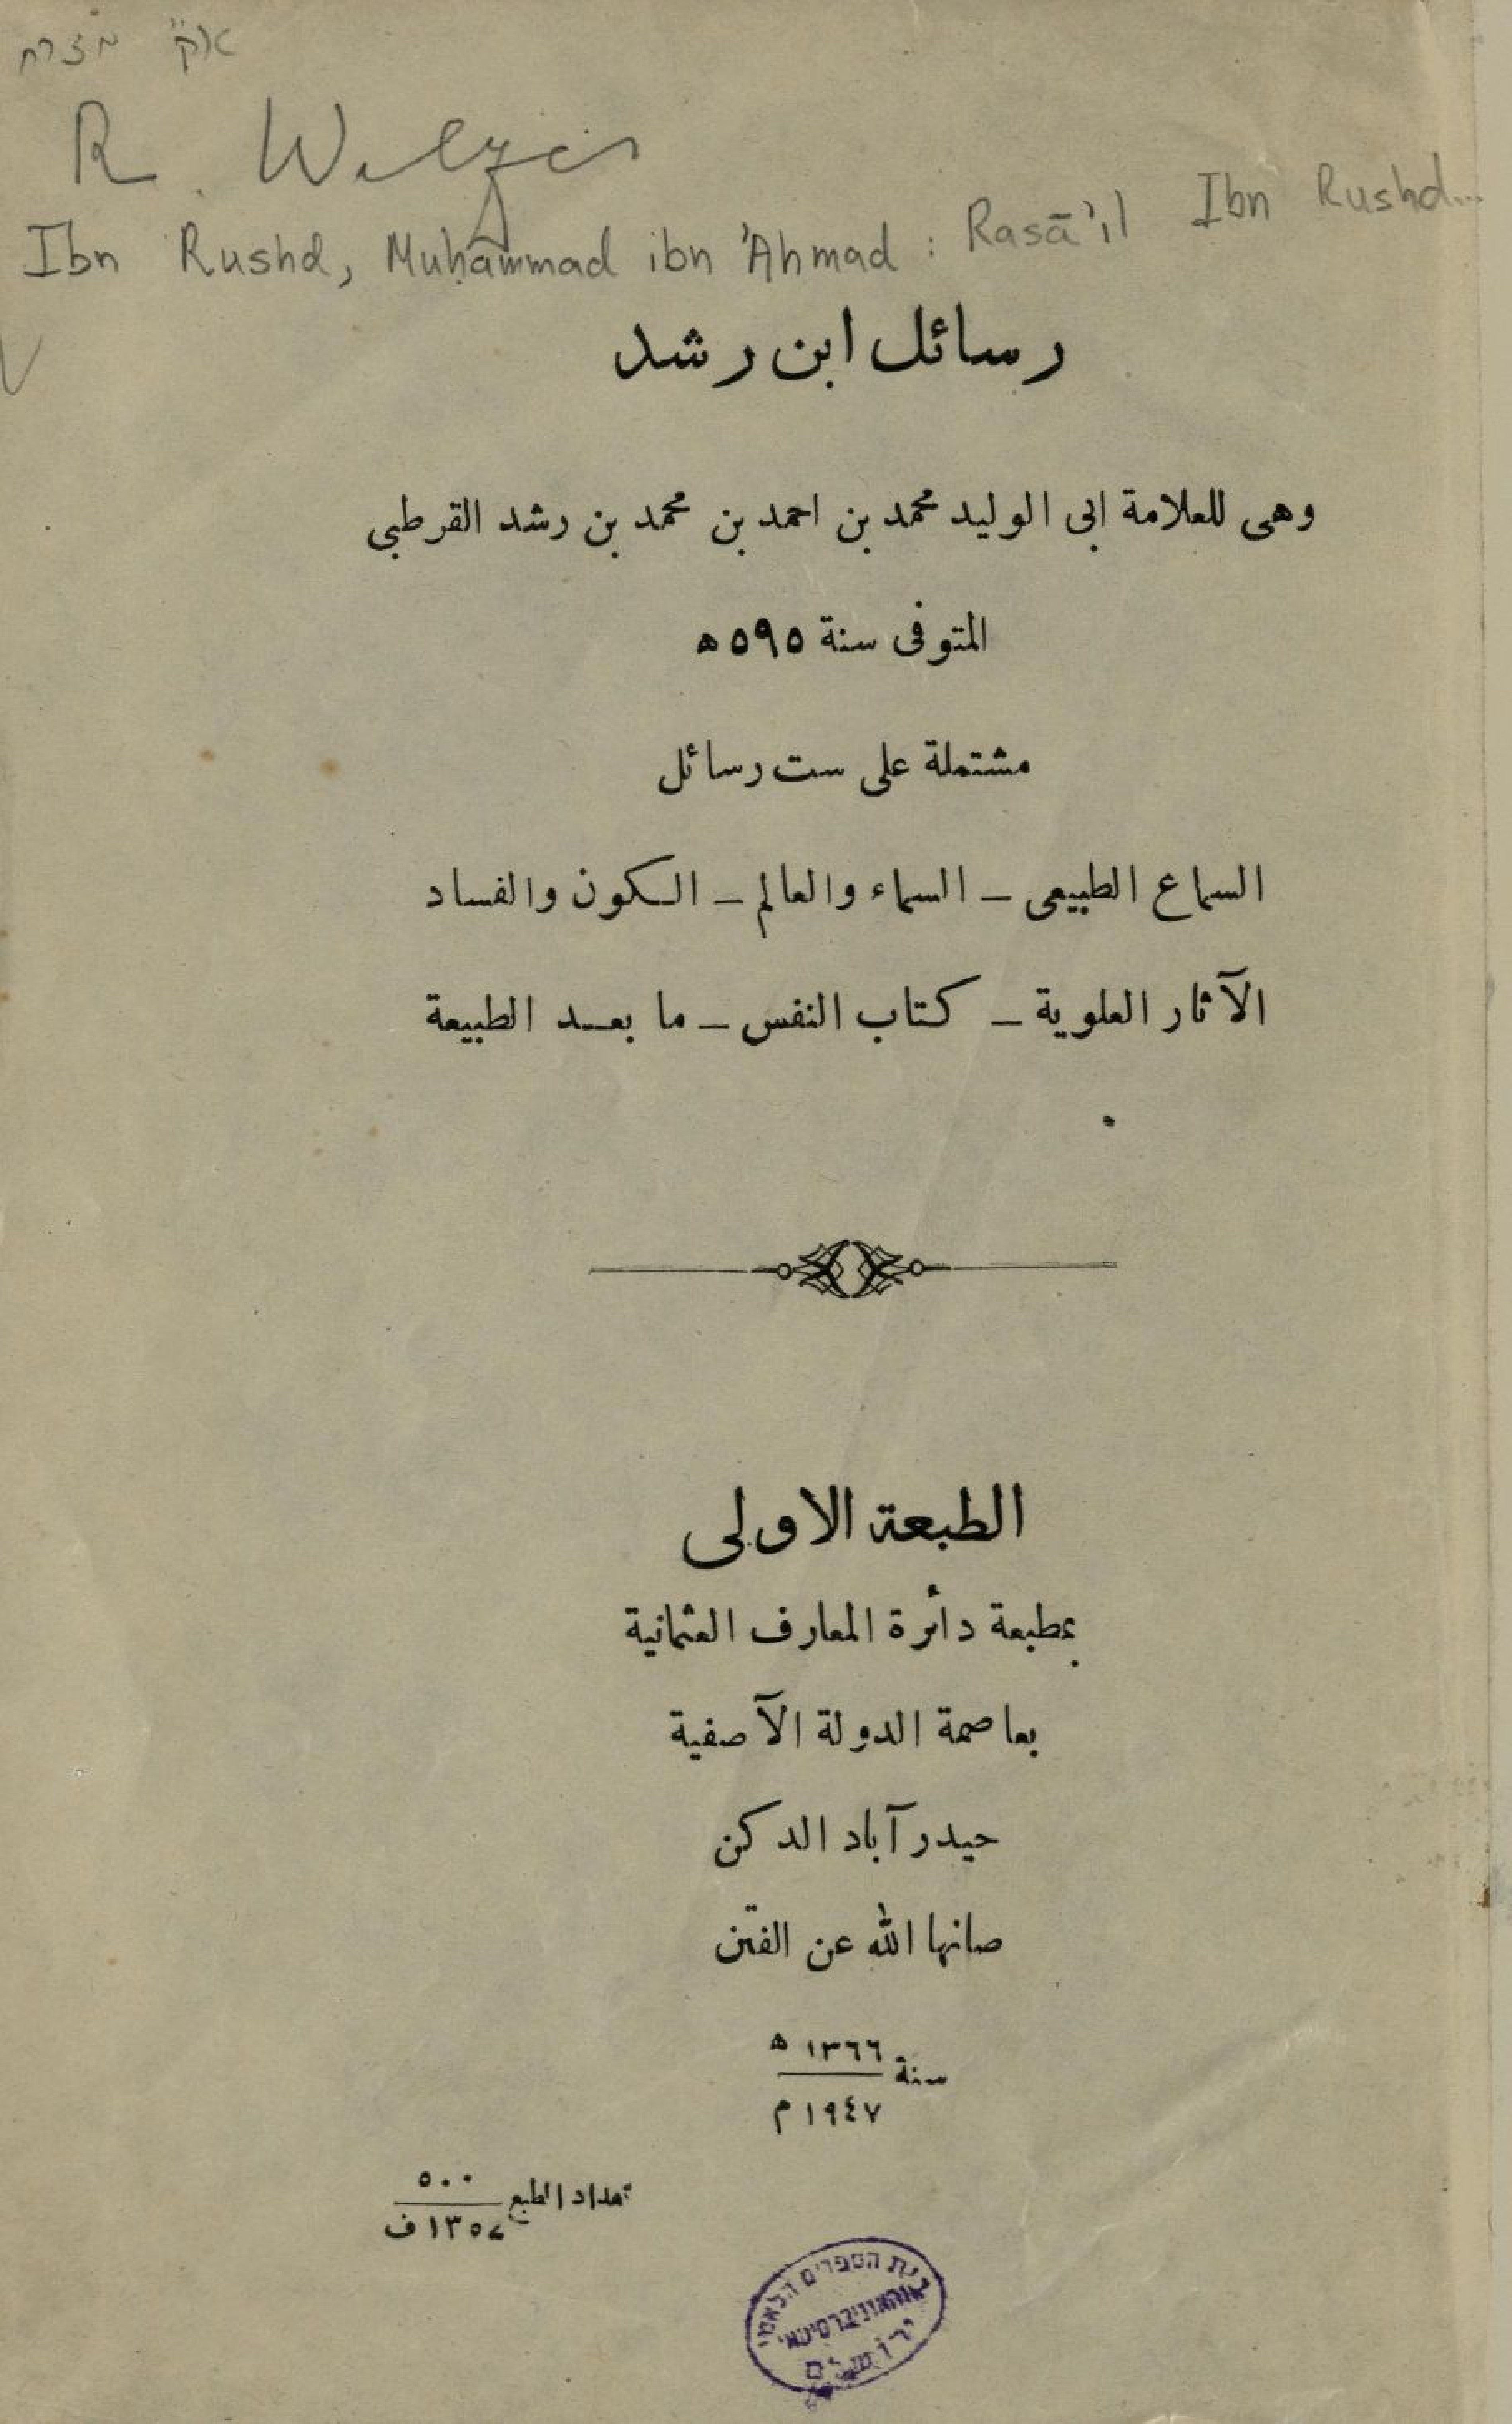 אק" מזרח
R. Walzer
Ibn Rushd, Muḥammad ibn 'Ahmad : Rasā'il Ibn Rushd...
رسائل ابن رشد
وهى للعلامة ابى الوليد محمد بن احمد بن محمد بن رشد القرطبى
المتوفى سنة ٥٩٥ ھ
مشتملة على ست رسائل
السماع الطبيعى – السماء والعالم – الكون والفساد
الآثار العلوية – كتاب النفس – ما بعد الطبيعة
الطبعة الاولى
بمطبعة دائرة المعارف العثمانية
بعاصمة الدولة الآصفية
حيدرآباد الدكن
صانها الله عن الفتن
سنة ١٣٦٦ ھ
١٩٤٧ م
تعداد الطبع ٥٠٠
١٣٥٧ ف
בית הספרים הלאומי
והאוניברסיטאי
ירושלים